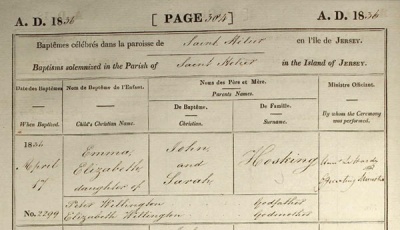 A. D. 1836 [ PAGE 384 ] A. D. 1836
Baptêmes célébrés dans la paroisse de Saint Helier en l'Ile de JERSEY.
Baptisms solemnized in the Parish of Saint Helier in the Island of JERSEY.
Date des Baptêmes Nom de Baptême de l'Enfant. Noms des Père et Mère. Ministre Officiant.
Parents Names.
De Baptême. De Famille.
When Baptised. Child's Christian Name. Christian. Surname. By whom the Ceremony was performed.
1836 Emma John Hosking
April Elizabeth and
17 daughter of Sarah
Peter Willington Godfather
No. 2299 Elizabeth Willington Godmother